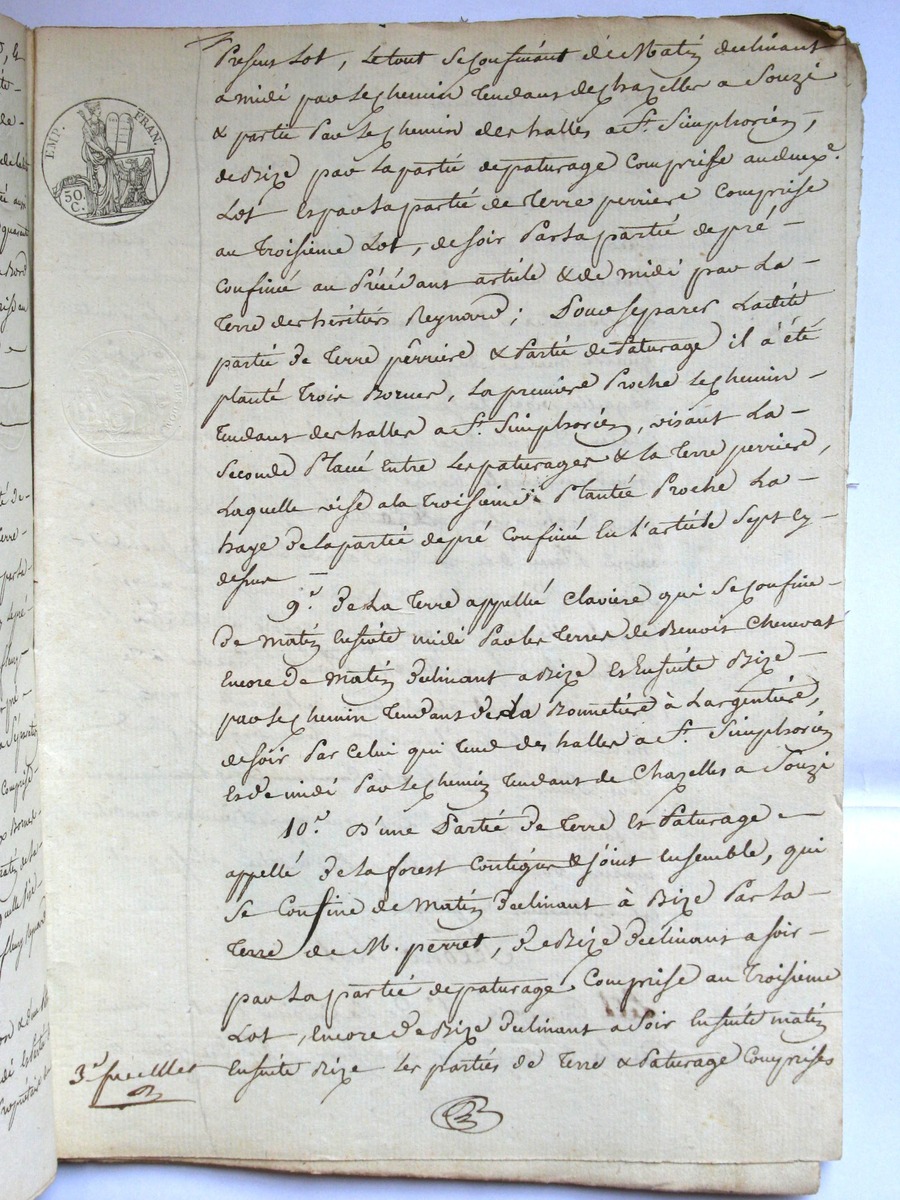 EMP. FRAN.
50. C.
Present Lot, Le tout Se Confinant de Matin declinant
a midi par Le Chemin Tendant de Chazelles a Souzi
& partie Par Le Chemin des halles a St. Simphorien,
de Bize par La partie de paturage Comprise au deuxe.
Lot Et par La partié de Terre perriere Comprise
au Troisieme Lot, de soir Par La partié de pré
Confiné au Précédant article & de midi par La
Terre des héritiers Reynard; Pour Separer Ladite
partié de Terre pérriere & Partié de Paturage il à été
planté Trois Bornes, La premiere Proche Le Chemin
Tendant des halles a St. Simphorien, visant La
Seconde Placé Entre Les paturages & la Terre perriere,
Laquelle vise a la Troisieme Plantée Proche La
haye de la partié de pré Confiné En L'article Sept Cy
dessus
9°. De La Terre appellée Claviere qui Se Confine
De Matin Ensuite midi Par les Terres de Benoit Chenevat
Encore de Matin declinant a Bize Et Ensuite Bize
par Le Chemin Tendant de La Bonnetiere à Largentiere,
de soir Par Celui qui Tend des halles a St. Simphorien
Et de midi Par Le Chemin Tendant de Chazelles a Souzi
10°. D'une Partié de Terre Et Paturage
appellé De La forest Contigus & Joint Ensemble, qui
Se Confine de Matin declinant à Bize Par La
Terre de M. perret, de Bize declinant a soir
par La partié de paturage Comprise au Troisieme
Lot, Encore de Bize declinant a Soir Ensuite matin
Ensuite Bize Les parties de Terre & Paturage Comprises
3e feuillet